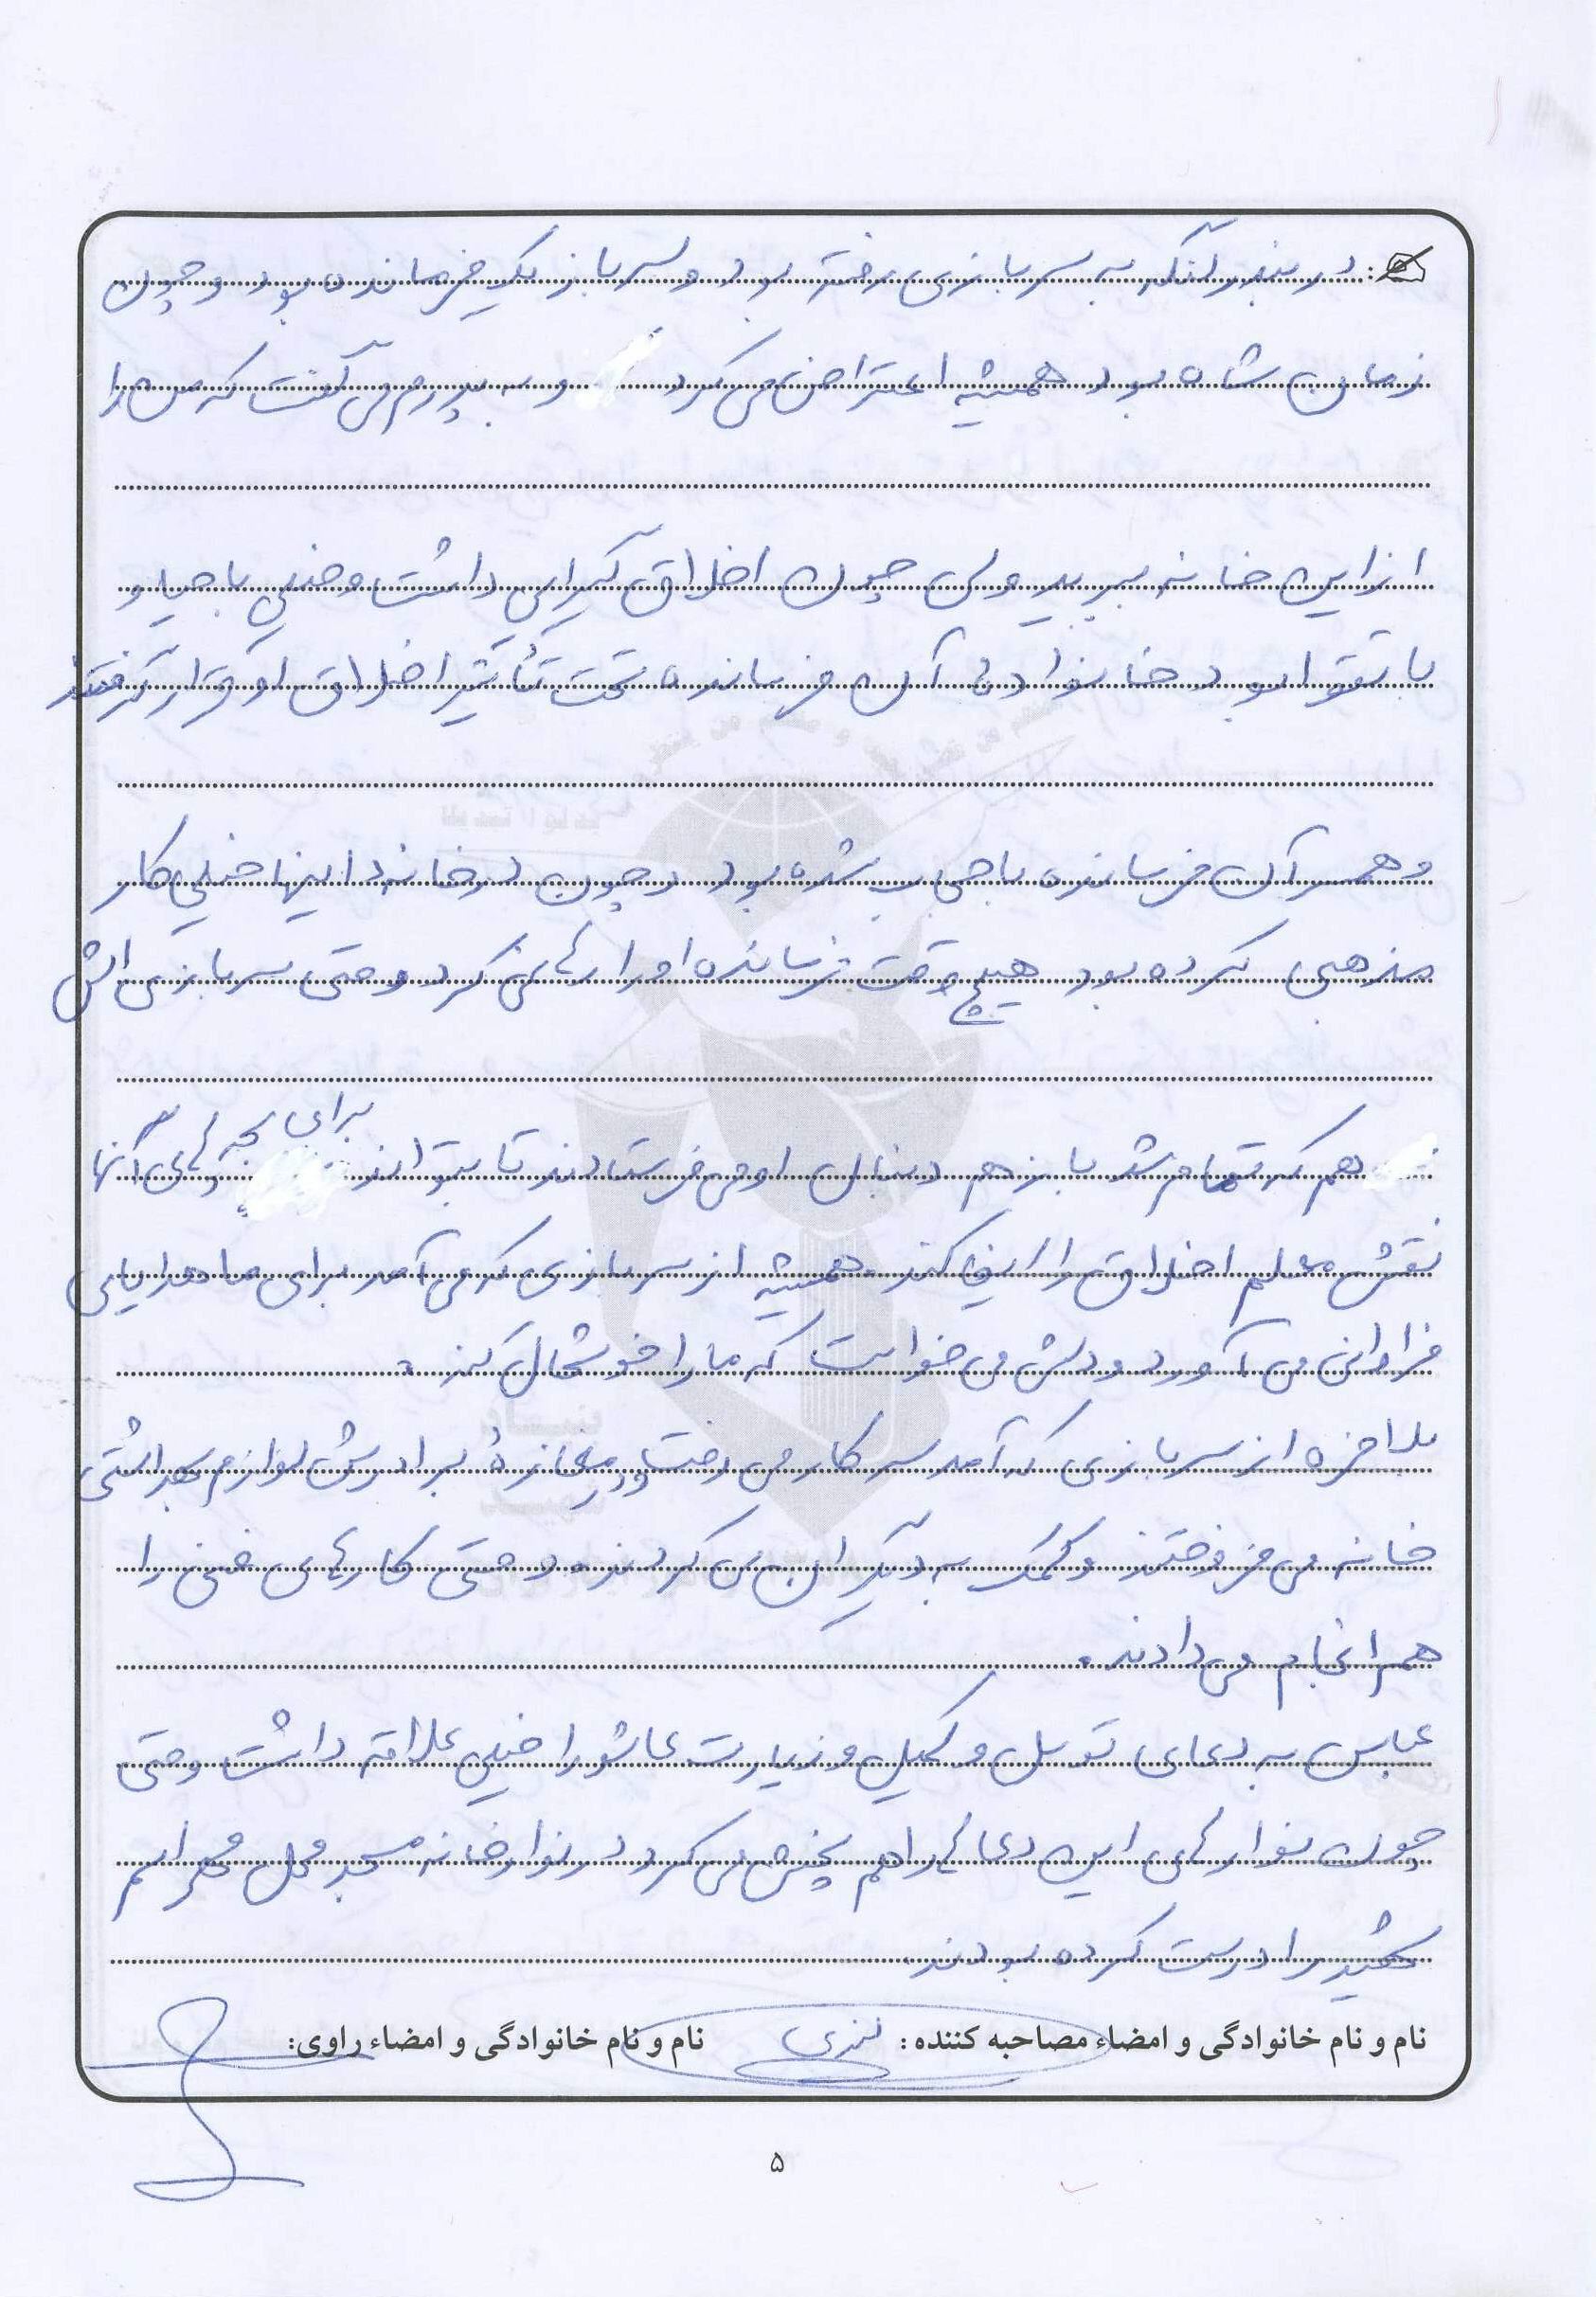 در بندر لنگه به سربازی رفته بود و سرباز یک فرمانده بود و چون
زمان شاه بود همیشه اعتراض می کرد و به پدرم می گفت که من را
از این خانه ببرید ولی چون اخلاق گیرایی داشت و خیلی با حیا و
با تقوا بود خانوادهٔ آن فرمانده تحت تأثیر اخلاق او قرار گرفتند
و همسر آن فرمانده با حجاب شده بود و چون در خانهٔ اینها خیلی کار
مذهبی کرده بود هیچ وقت فرمانده او را رها نمی کرد و حتی سربازی اش
هم که تمام شد باز هم دنبال او می فرستادند تا بتواند برای بچه های آنها
نقش معلم اخلاق را ایفا کند. همیشه از سربازی که می آمد برای ما هدایای
فراوانی می آورد و دلش می خواست که ما را خوشحال کند.
بلاخره از سربازی که آمد سر کار می رفت و در مغازهٔ برادرش لوازم بهداشتی
خانه می فروختند و کمک به دیگران می کردند و حتی کارهای فنی را
هم انجام می دادند.
عباس به دعای توسل و کمیل و زیارت عاشورا خیلی علاقه داشت و حتی
چون نوارهای این دعاها را هم پخش می کرد در نوارخانه مسجد محل هم اسم
شهید را درست کرده بودند
نام و نام خانوادگی و امضاء مصاحبه کننده: نام و نام خانوادگی و امضاء راوی:
۵